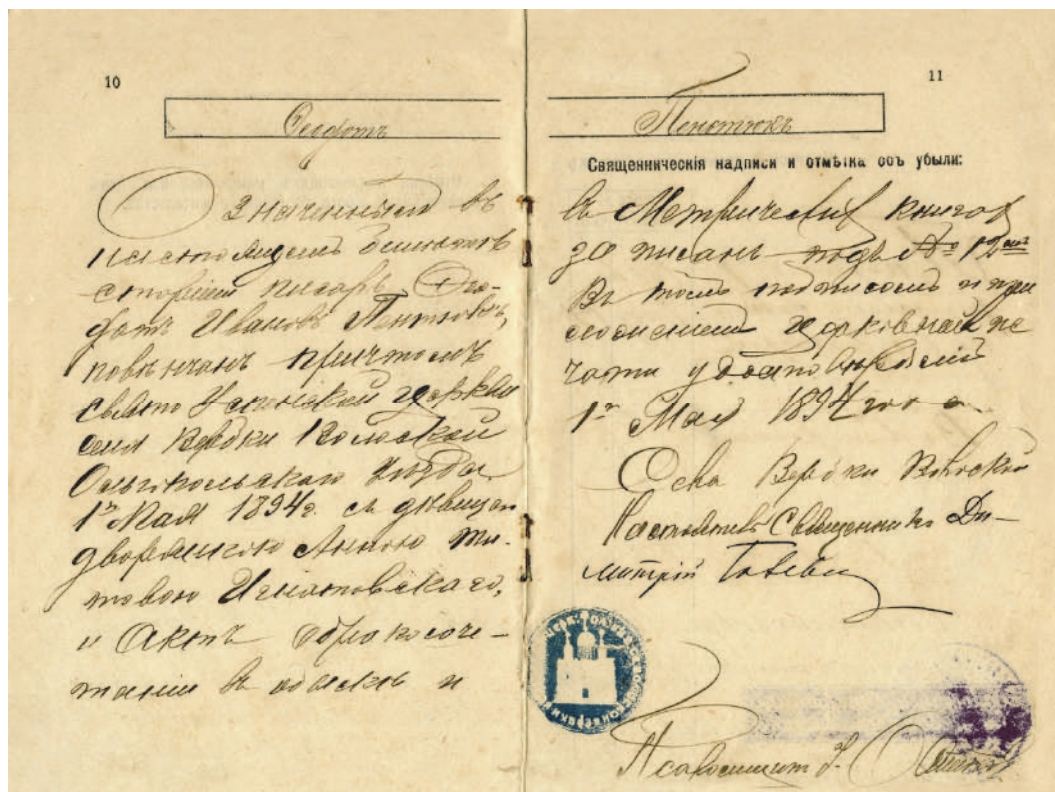 10
Означенный въ
настоящемъ билетѣ
старшій писарь Ѳео-
фатъ Ивановъ Пентюкъ,
повѣнчанъ причтомъ
Свято Успенской церкви
села Вербки Волоской
Ольгопольскаго уѣзда
1го Мая 1894г. съ дѣвицею
дворянкою Анною Ти-
товою Игнатовскаго,
и Актъ о бракосоче-
таніи въ обыскъ и
11
Пентюкъ
Священническія надписи и отмѣтка объ убыли:
въ Метрическую книгу
записанъ подъ № 12
Въ томъ подписомъ и при
ложеніемъ церковной пе
чати удостовѣряю
1го Мая 1894 года
Села Вербки Волоской
Настоятель Священникъ Ди-
митрій
Псаломщикъ